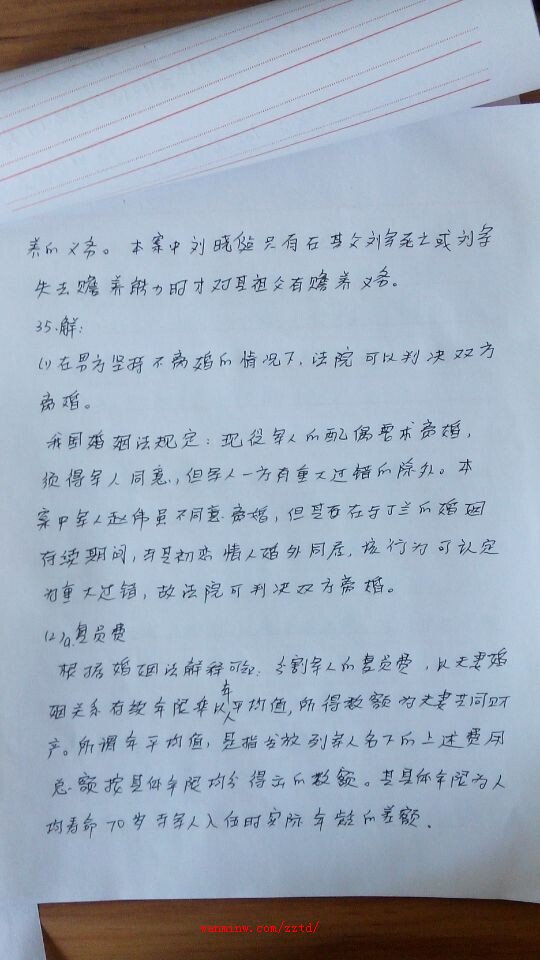 养的义务。本案中刘晓 只有在其父刘军死亡或刘军
失去赡养能力时才对其祖父有赡养义务。
35.解:
(1)在男方坚持不离婚的情况下,法院可以判决双方
离婚。
我国婚姻法规定:现役军人的配偶要求离婚,
须得军人同意,但军人一方有重大过错的除外。本
案中军人赵伟虽不同意离婚,但其在与丁兰的婚姻
存续期间,与其初恋情人婚外同居,该行为可认定
为重大过错,故法院可判决双方离婚。
(2)a.复员费
根据婚姻法解释可知:分割军人的复员费,以夫妻婚
姻关系存续年限乘以年平均值,所得数额为夫妻共同财
产。所谓年平均值,是指发放到军人名下的上述费用
总额按具体年限均分得出的数额。其具体年限为人
均寿命70岁与军人入伍时实际年龄的差额.
wenminw.com/zztd/